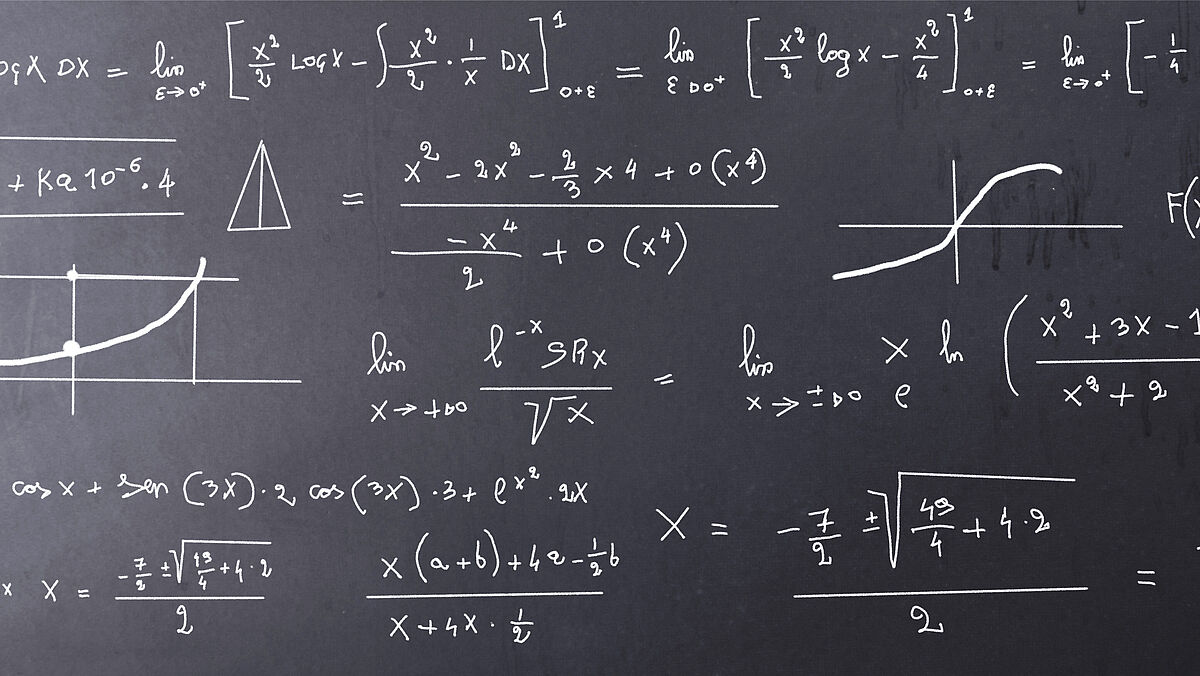 ogX DX = lim ε→0⁺ [x²/2 LOGX − ∫ x²/2 · 1/x DX]¹ ₀₊ε = lim ε→0⁺ [x²/2 log x − x²/4]¹ ₀₊ε = lim ε→0⁺ [− 1/4
+ Ka 10⁻⁶ · 4
= (x² − 2x² − 2/3 x 4 + 0 (x⁴)) / (−x⁴/2 + 0 (x⁴))
F(x
lim x→+∞ (e⁻ˣ) / √x = lim x→±∞ x e ln ( (x² + 3x − 1) / (x² + 2)
cos x + sen (3x) · 2 cos (3x) · 3 + e^x² · 2x
x X = (−7/2 ± √(49/4 + 4 · 2)) / 2
(x (a+b) + 4a − 1/2 b) / (x + 4x · 1/2)
X = (−7/2 ± √(49/4 + 4 · 2)) / 2 =